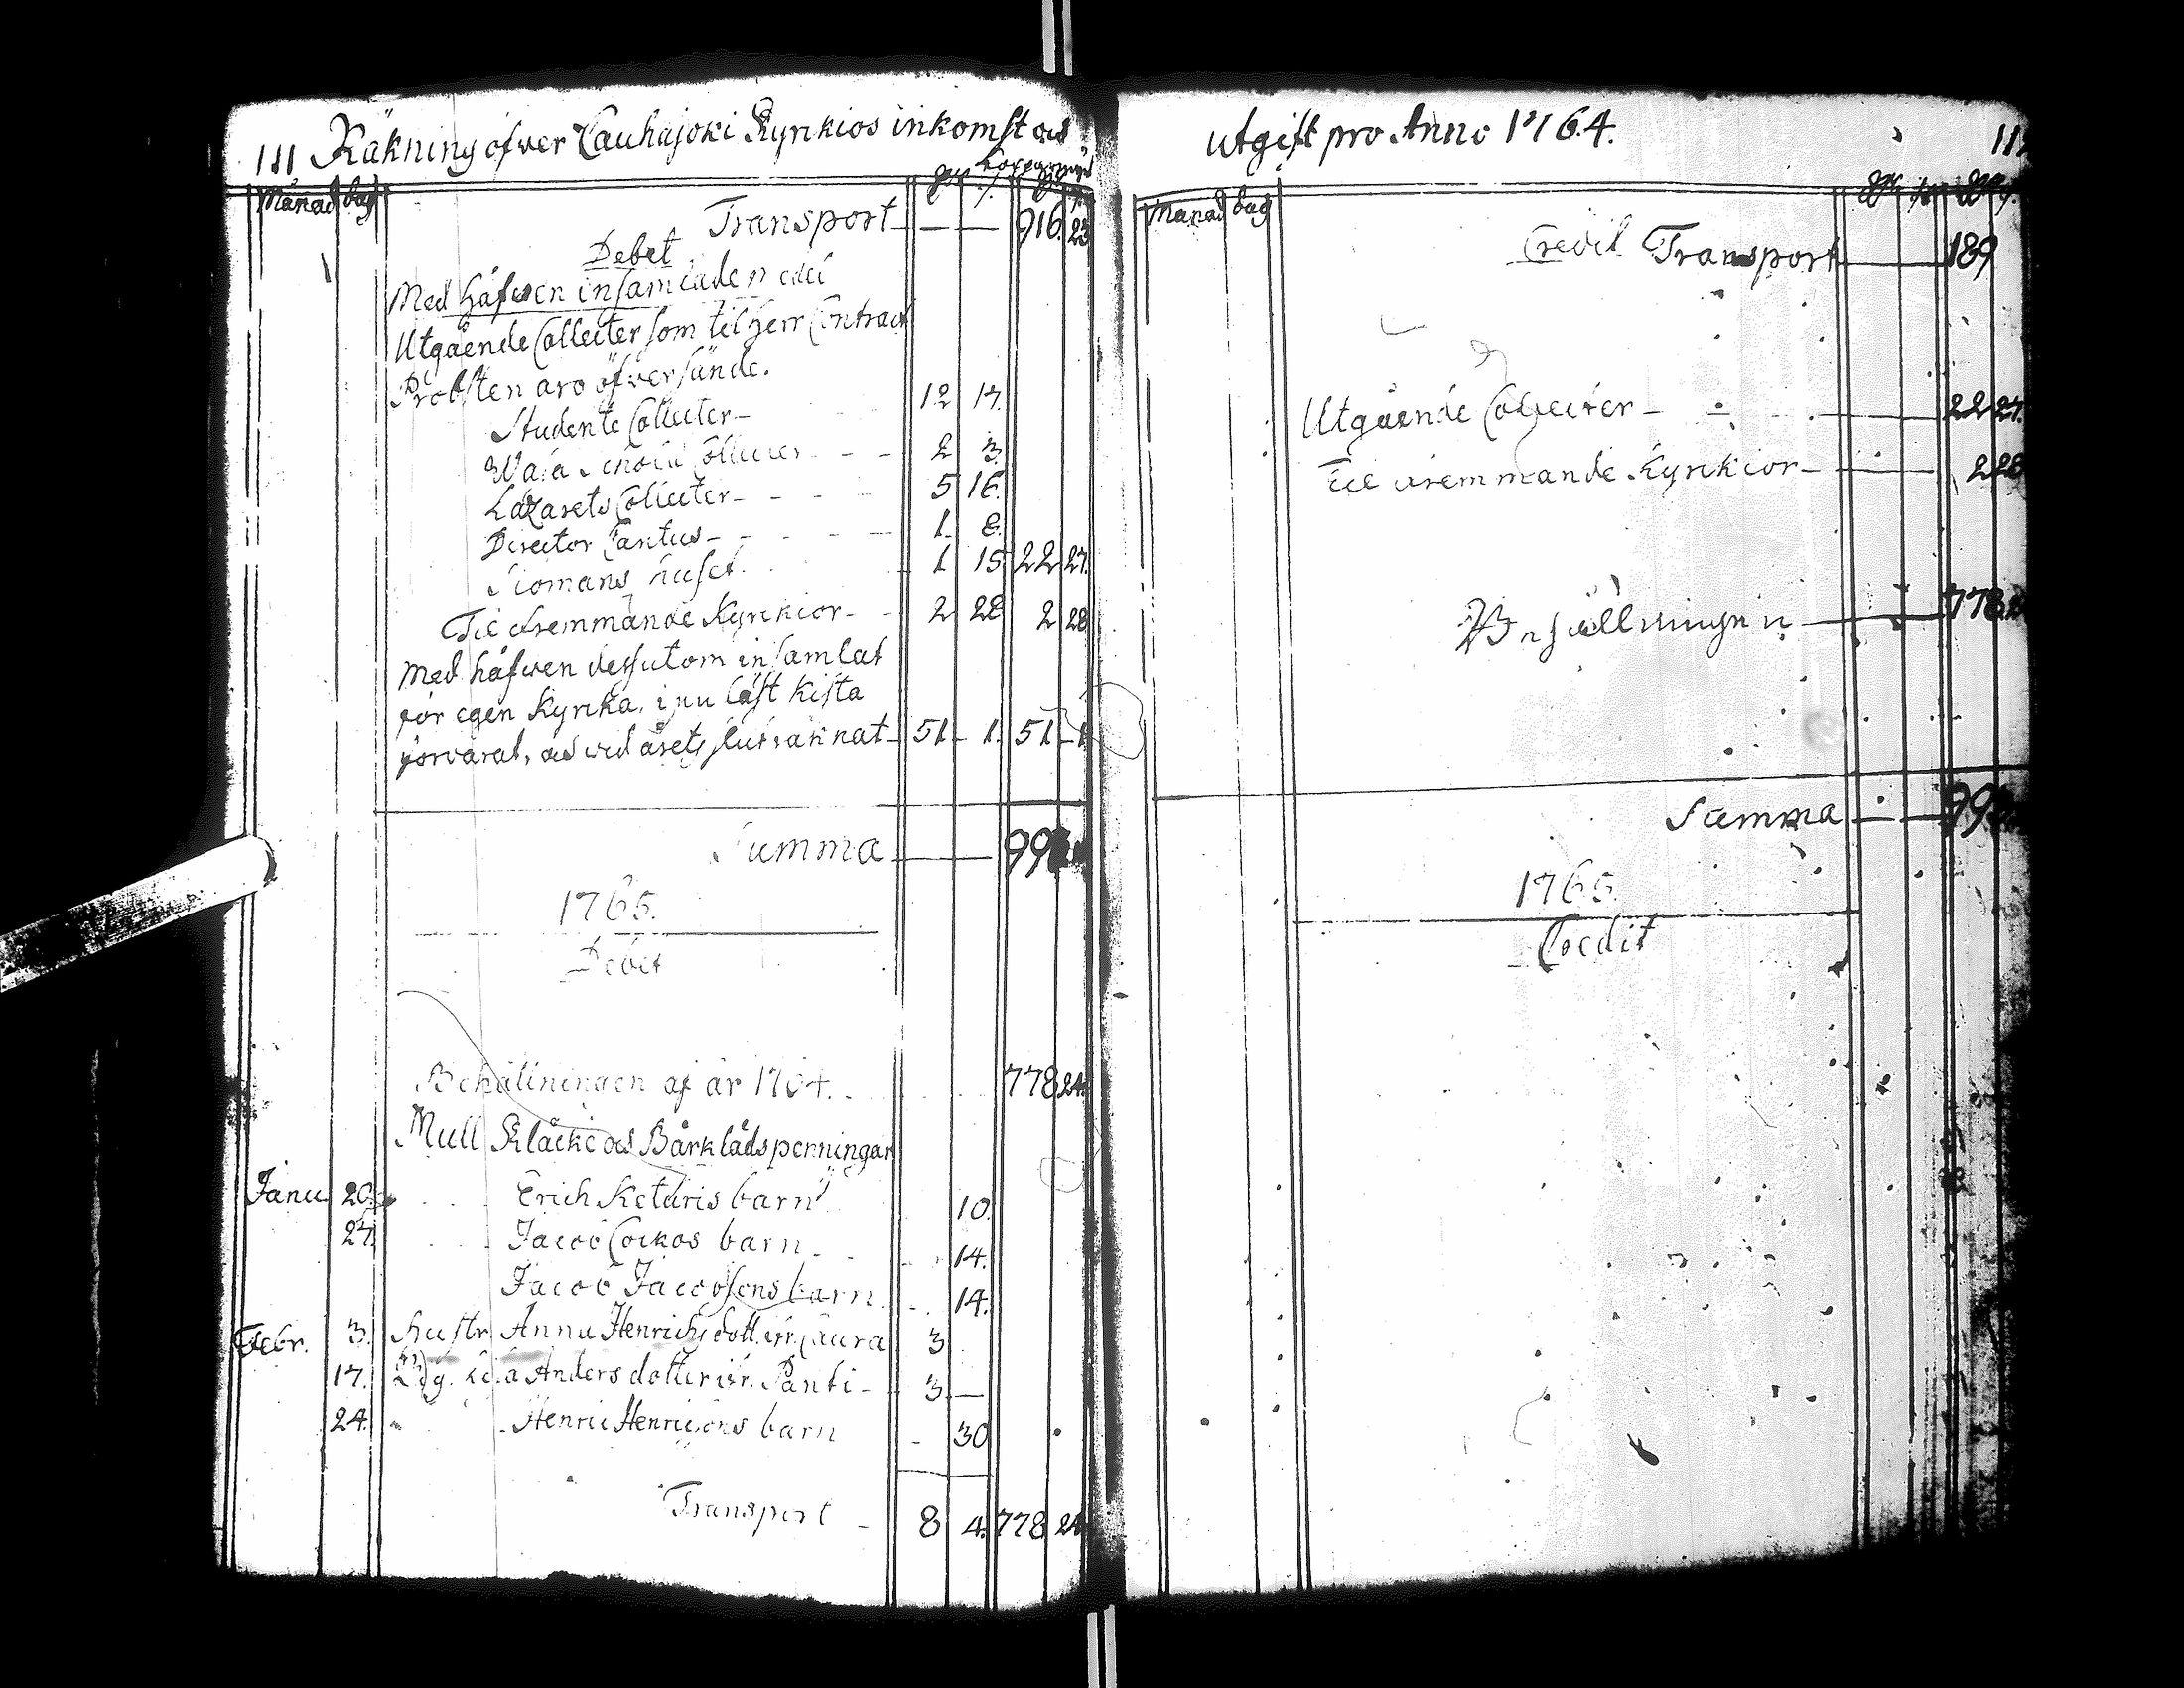 111 Räkning öfver Cauhajoki Kyrkios inkomst och
Månad dag
Transport — — 916. 23
Debet
Med håfwen insamlade
Utgående Collecter som til herr Contract
Probsten äro öfversände.
Studente Collecter — 12 17.
Wasa Schola Collecter — 2 3.
Lazarets Collecter — 5 16.
Director Cantus — 1. 8.
Siömans huset. 1 15. 22 27.
Til fremmande Kyrkior — 2 28 2 28
Med håfwen dessutom insamlat
för egen Kyrka, i nu låst Kista
förvarat, och vid årets slut räknat — 51 — 1. 51 — 1
Summa — — 99
1765.
Debet
Behållningen af år 1764. 778 24.
Mull Kläcke och Bårklädspenningar
Janu. 20. Erich Keturis barn 10.
27. Jacob Cockos barn 14.
Jacob Jacobsons barn. 14.
Febr. 3. Hustr. Anna Henrichsdott. Laura 3
17. Anders dotter Panti — 3 —
24. Henric Henricsons barn 30
Transport — 8 4. 778 24.
utgift pro Anno 1764.
Månad dag
Credit Transport 189
Utgående Collecter — 22 27.
Til fremmande Kyrkior — 2 28
Behållningen — 778
Summa — — 99
1765.
Credit